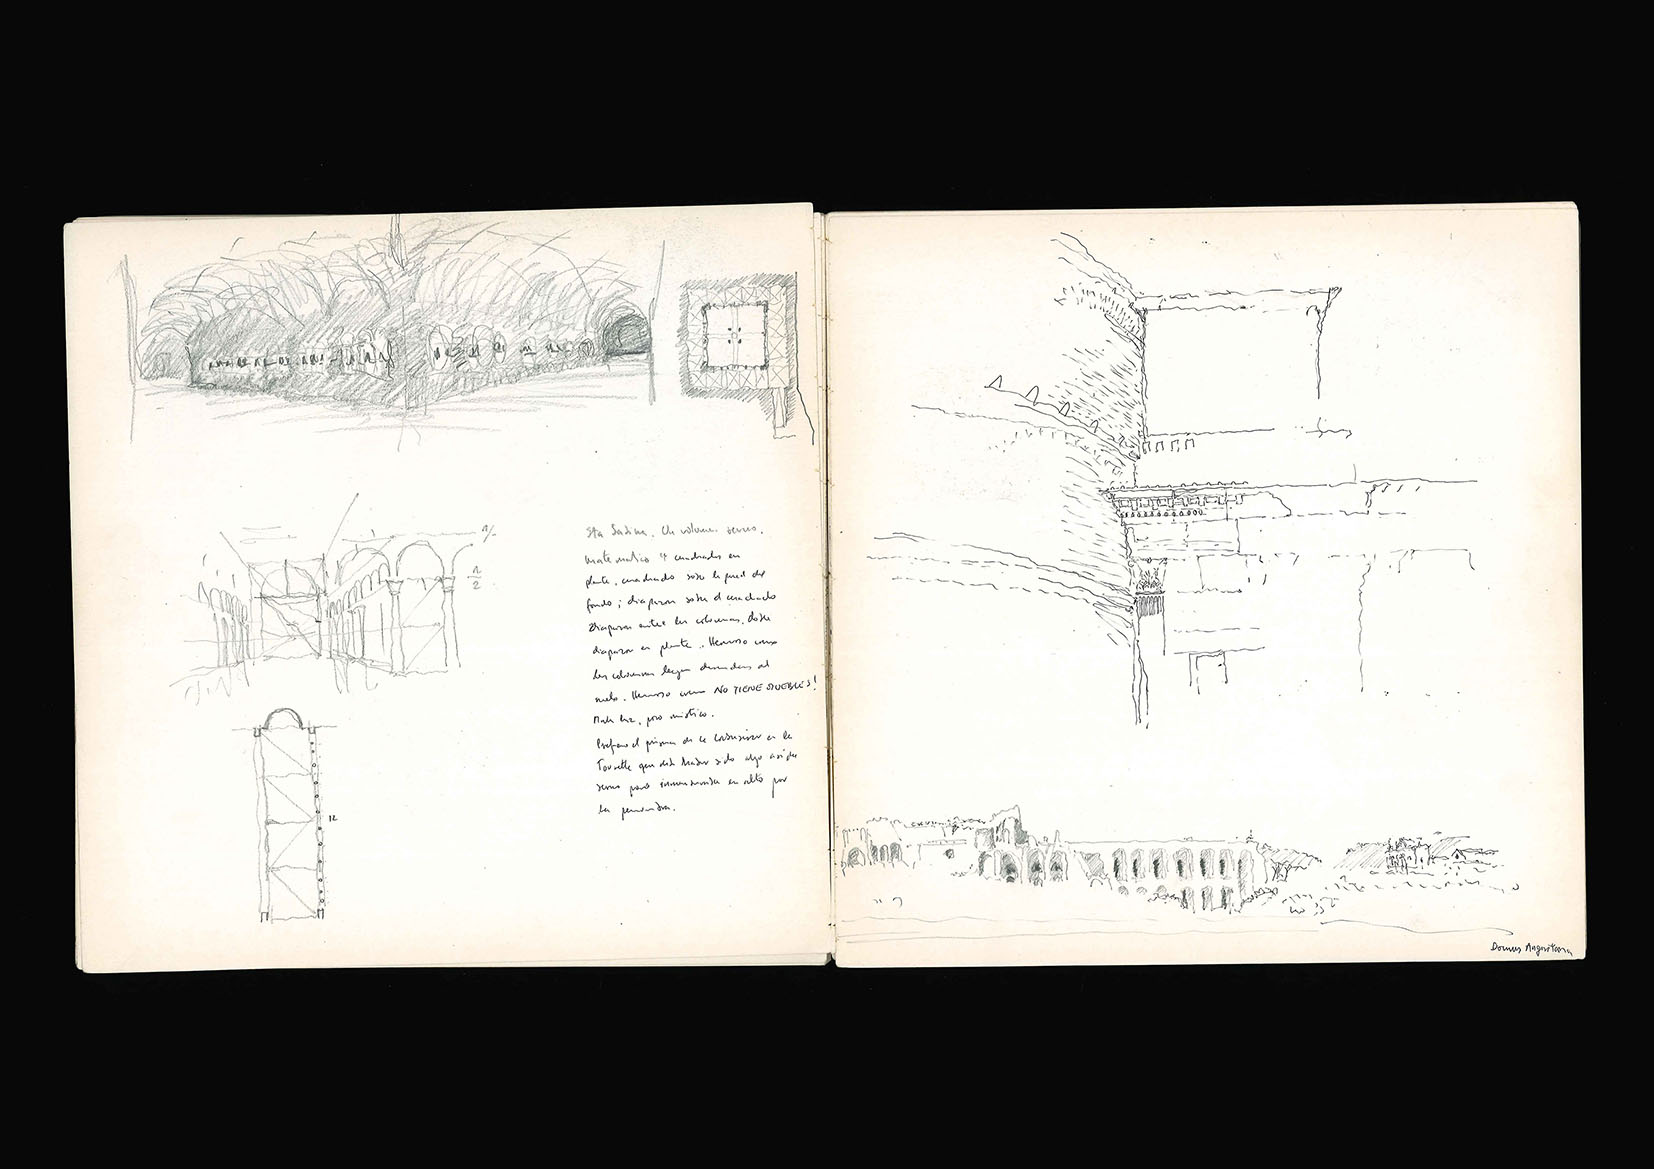 n/
n
2
Sta Sabina. Un volumen sereno.
matematico 4 cuadrados en
planta, cuadrado sobre la pared del
fondo; diapason sobre el cuadrado
Diapason entre las columnas, doble
diapason en planta. Hermoso como
las columnas llegan desnudas al
suelo. Hermoso como NO TIENE MUEBLES!
Mala luz, pero mistico.
Prefiero el prisma de Le Corbusier en la
Tourette que debe haber sido algo asi de
sereno pero en alto por
la penumbra.
12
Domus Augustana